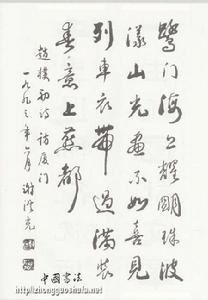 鹭门海上耀明珠波
漾山光画不如喜见
列车衣带过满装
春意上燕都
赵朴初诗访厦门
一九九三年六月谢澄光
中國書法
http://zhongguoshufa.net